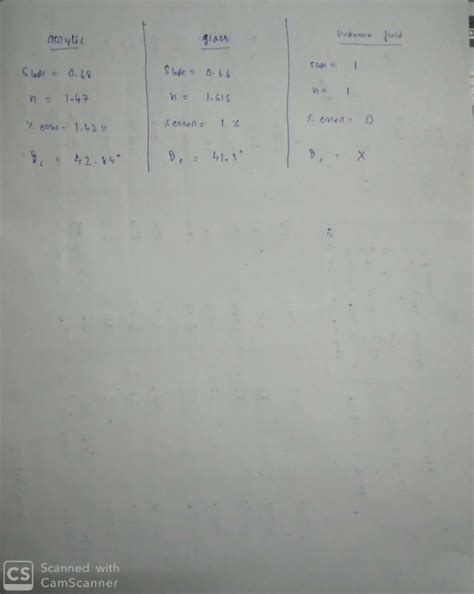 acrylic
Slope = 0.68
n = 1.47
% error = 1.42 %
θc = 42.84°
glass
Slope = 0.66
n = 1.515
% error = 1 %
θc = 41.3°
Unknown fluid
Slope = 1
n = 1
% error = 0
θc = X
CS Scanned with
CamScanner